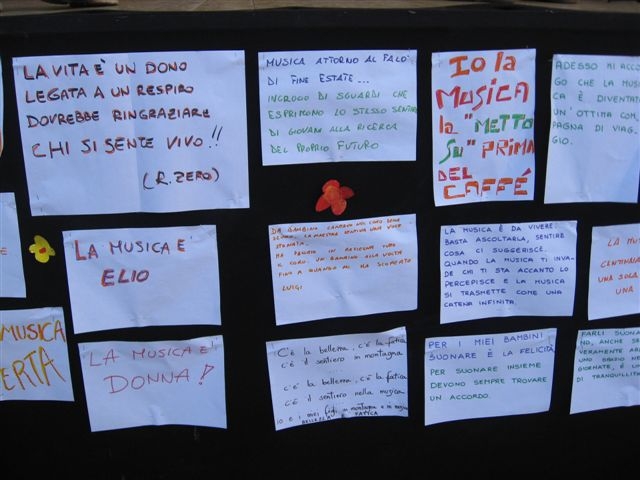 LA VITA È UN DONO
LEGATA A UN RESPIRO
DOVREBBE RINGRAZIARE
CHI SI SENTE VIVO.!!
(R. ZERO)
MUSICA ATTORNO AL FALO'
DI FINE ESTATE...
INCROCIO DI SGUARDI CHE
ESPRIMONO LO STESSO
DI GIOVANI ALLA RICERCA
DEL PROPRIO FUTURO
IO la
MUSICA
la "METTO
SU" PRIMA
DEL
CAFFÉ
ADESSO MI ACCOR
GO CHE LA MUSI
CA È DIVENTA
UN'OTTIMA COM
PAGNA DI VIAG
GIO.
LA MUSICA E'
ELIO
DA BAMBINO CANTAVO NEL CORO DELLE
SCUOLE. LA MAESTRA SENTIVA UNA VOCE
STONATA.
HA PROVATO IN REGIONE TUTTO
IL CORO, UN BAMBINO ALLA VOLTA
FINO A QUANDO MI HA SCOPERTO
LUIGI
LA MUSICA È DA VIVERE:
BASTA ASCOLTARLA, SENTIRE
COSA CI SUGGERISCE.
QUANDO LA MUSICA TI INVA-
DE CHI TI STA ACCANTO LO
PERCEPISCE E LA MUSICA
SI TRASMETTE COME UNA
CATENA INFINITA.
LA MUS
CENTINAIA
UNA SOLA
UNA
MUSICA
ERTA
LA MUSICA E'
DONNA!
C'è la bellezza, c'è la fatica
c'è il sentiero in montagna
c'è la bellezza, c'è la fatica
c'è il sentiero nella musica
io e i miei figli in montagna e in musica
BELLEZZA E FATICA
PER I MIEI BAMBINI
SUONARE È LA FELICITÀ
PER SUONARE INSIEME
DEVONO SEMPRE TROVARE
UN ACCORDO.
FARLI SUONAR
NO, ANCHE SE
VERAMENTE AR
UNO SPAZIO NE
GIORNATE, È UN
DI TRANQUILLIT